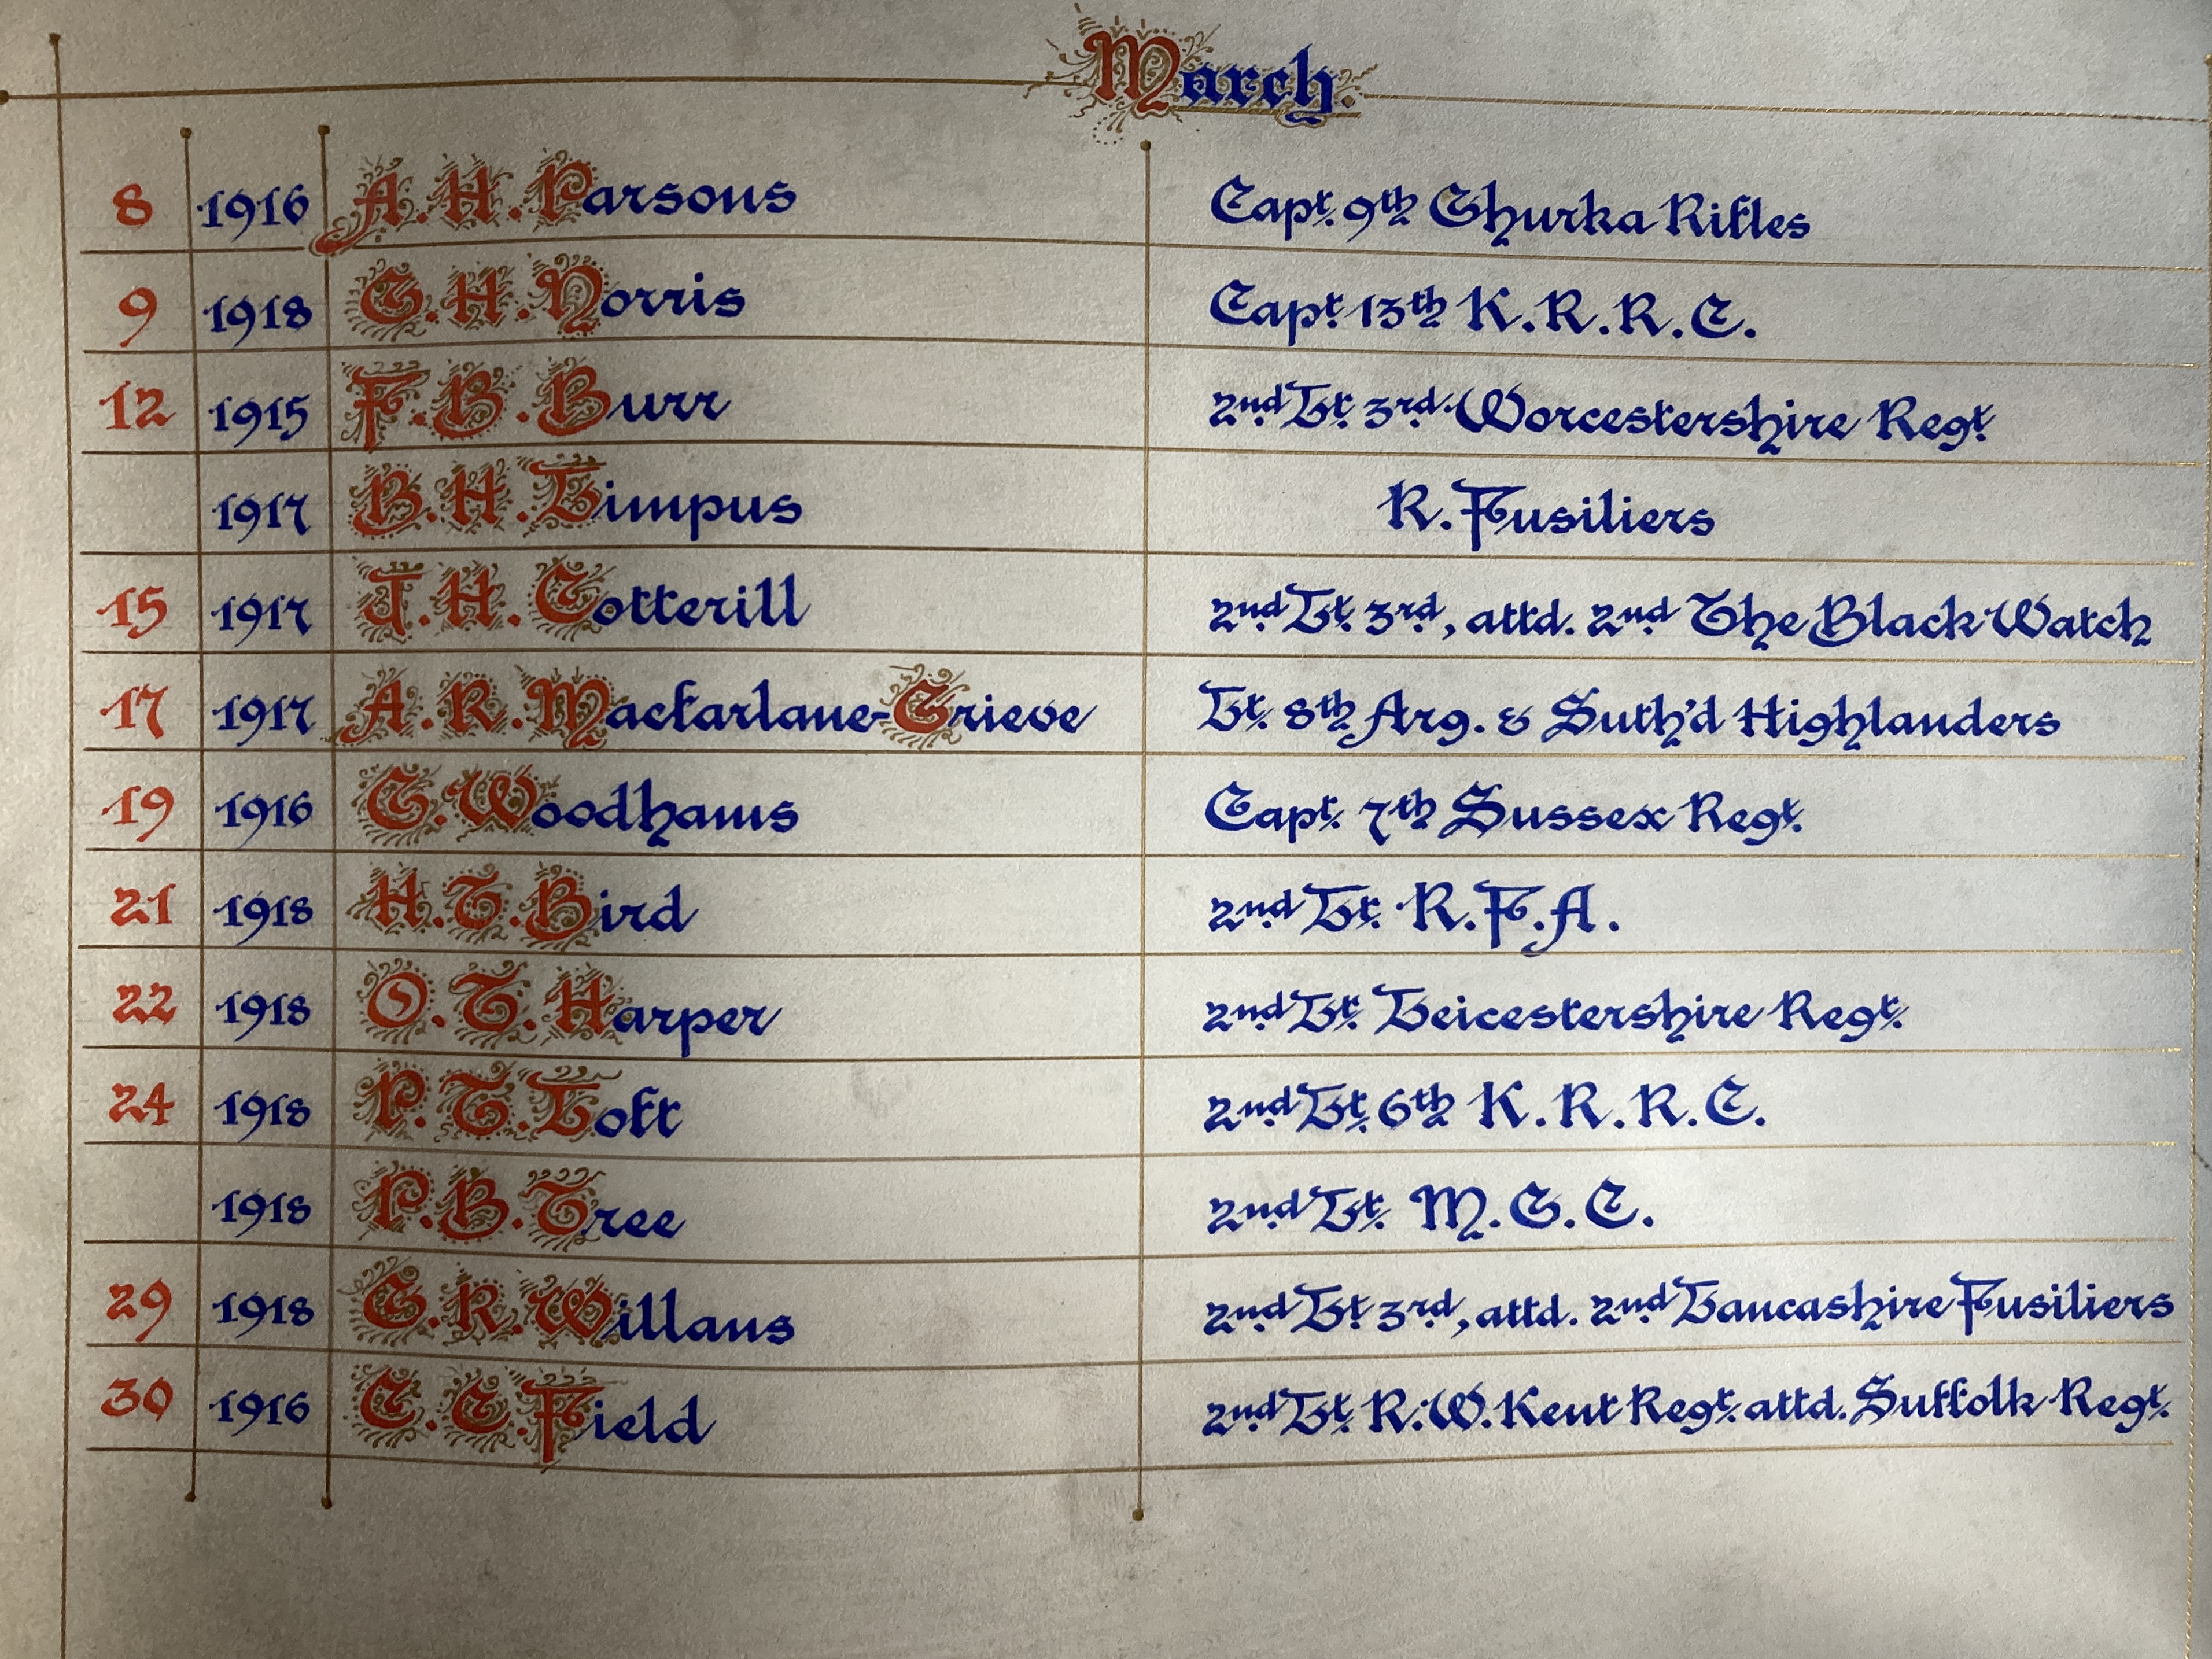 March.
8 1916 A. H. Parsons Capt. 9th Ghurka Rifles
9 1918 G. H. Norris Capt. 13th K.R.R.C.
12 1915 F. B. Burr 2nd Lt. 3rd. Worcestershire Regt.
1917 B. H. Limpus R. Fusiliers
15 1917 J. H. Cotterill 2nd Lt. 3rd, attd. 2nd The Black Watch
17 1917 A. R. Macfarlane-Grieve Lt. 8th Arg. & Suth'd Highlanders
19 1916 G. Woodhams Capt. 7th Sussex Regt.
21 1918 H. T. Bird 2nd Lt. R.F.A.
22 1918 O. T. Harper 2nd Lt. Leicestershire Regt.
24 1918 P. T. Loft 2nd Lt. 6th K.R.R.C.
1918 P. B. Tree 2nd Lt. M.G.C.
29 1918 G. R. Willans 2nd Lt 3rd, attd. 2nd Lancashire Fusiliers
30 1916 C. C. Field 2nd Lt. R. W. Kent Regt. attd. Suffolk Regt.